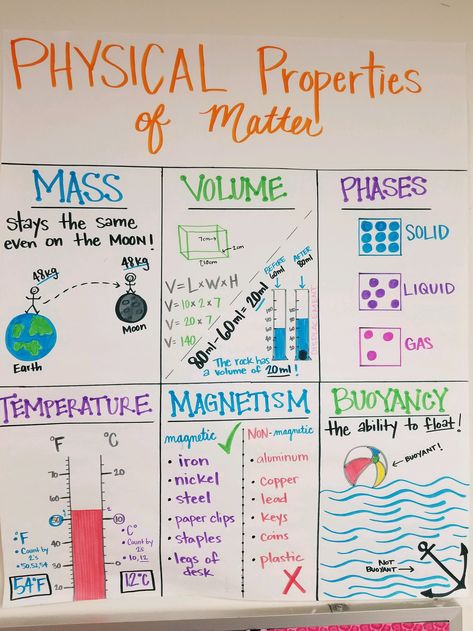 PHYSICAL Properties
of Matter
MASS
stays the same
even on the MOON!
48kg
48kg
Earth
Moon
VOLUME
7cm
2cm
10cm
V=L×W×H
V=10×2×7
V=20×7
V=140
80ml-60ml=20ml
BEFORE
60ml
AFTER
80ml
DISPLACEMENT
The rock has
a volume of 20ml!
PHASES
SOLID
LIQUID
GAS
TEMPERATURE
°F
°C
50
40
30
20
20
10
0
°F
• Count by
2's
• 50,52,54
54°F
• C°
• Count by
2's
• 10,12
12°C
MAGNETISM
magnetic
• iron
• nickel
• steel
• paper clips
• staples
• legs of
desk
NON-magnetic
• aluminum
• copper
• lead
• keys
• coins
• plastic
BUOYANCY
the ability to float!
BUOYANT!
NOT
BUOYANT